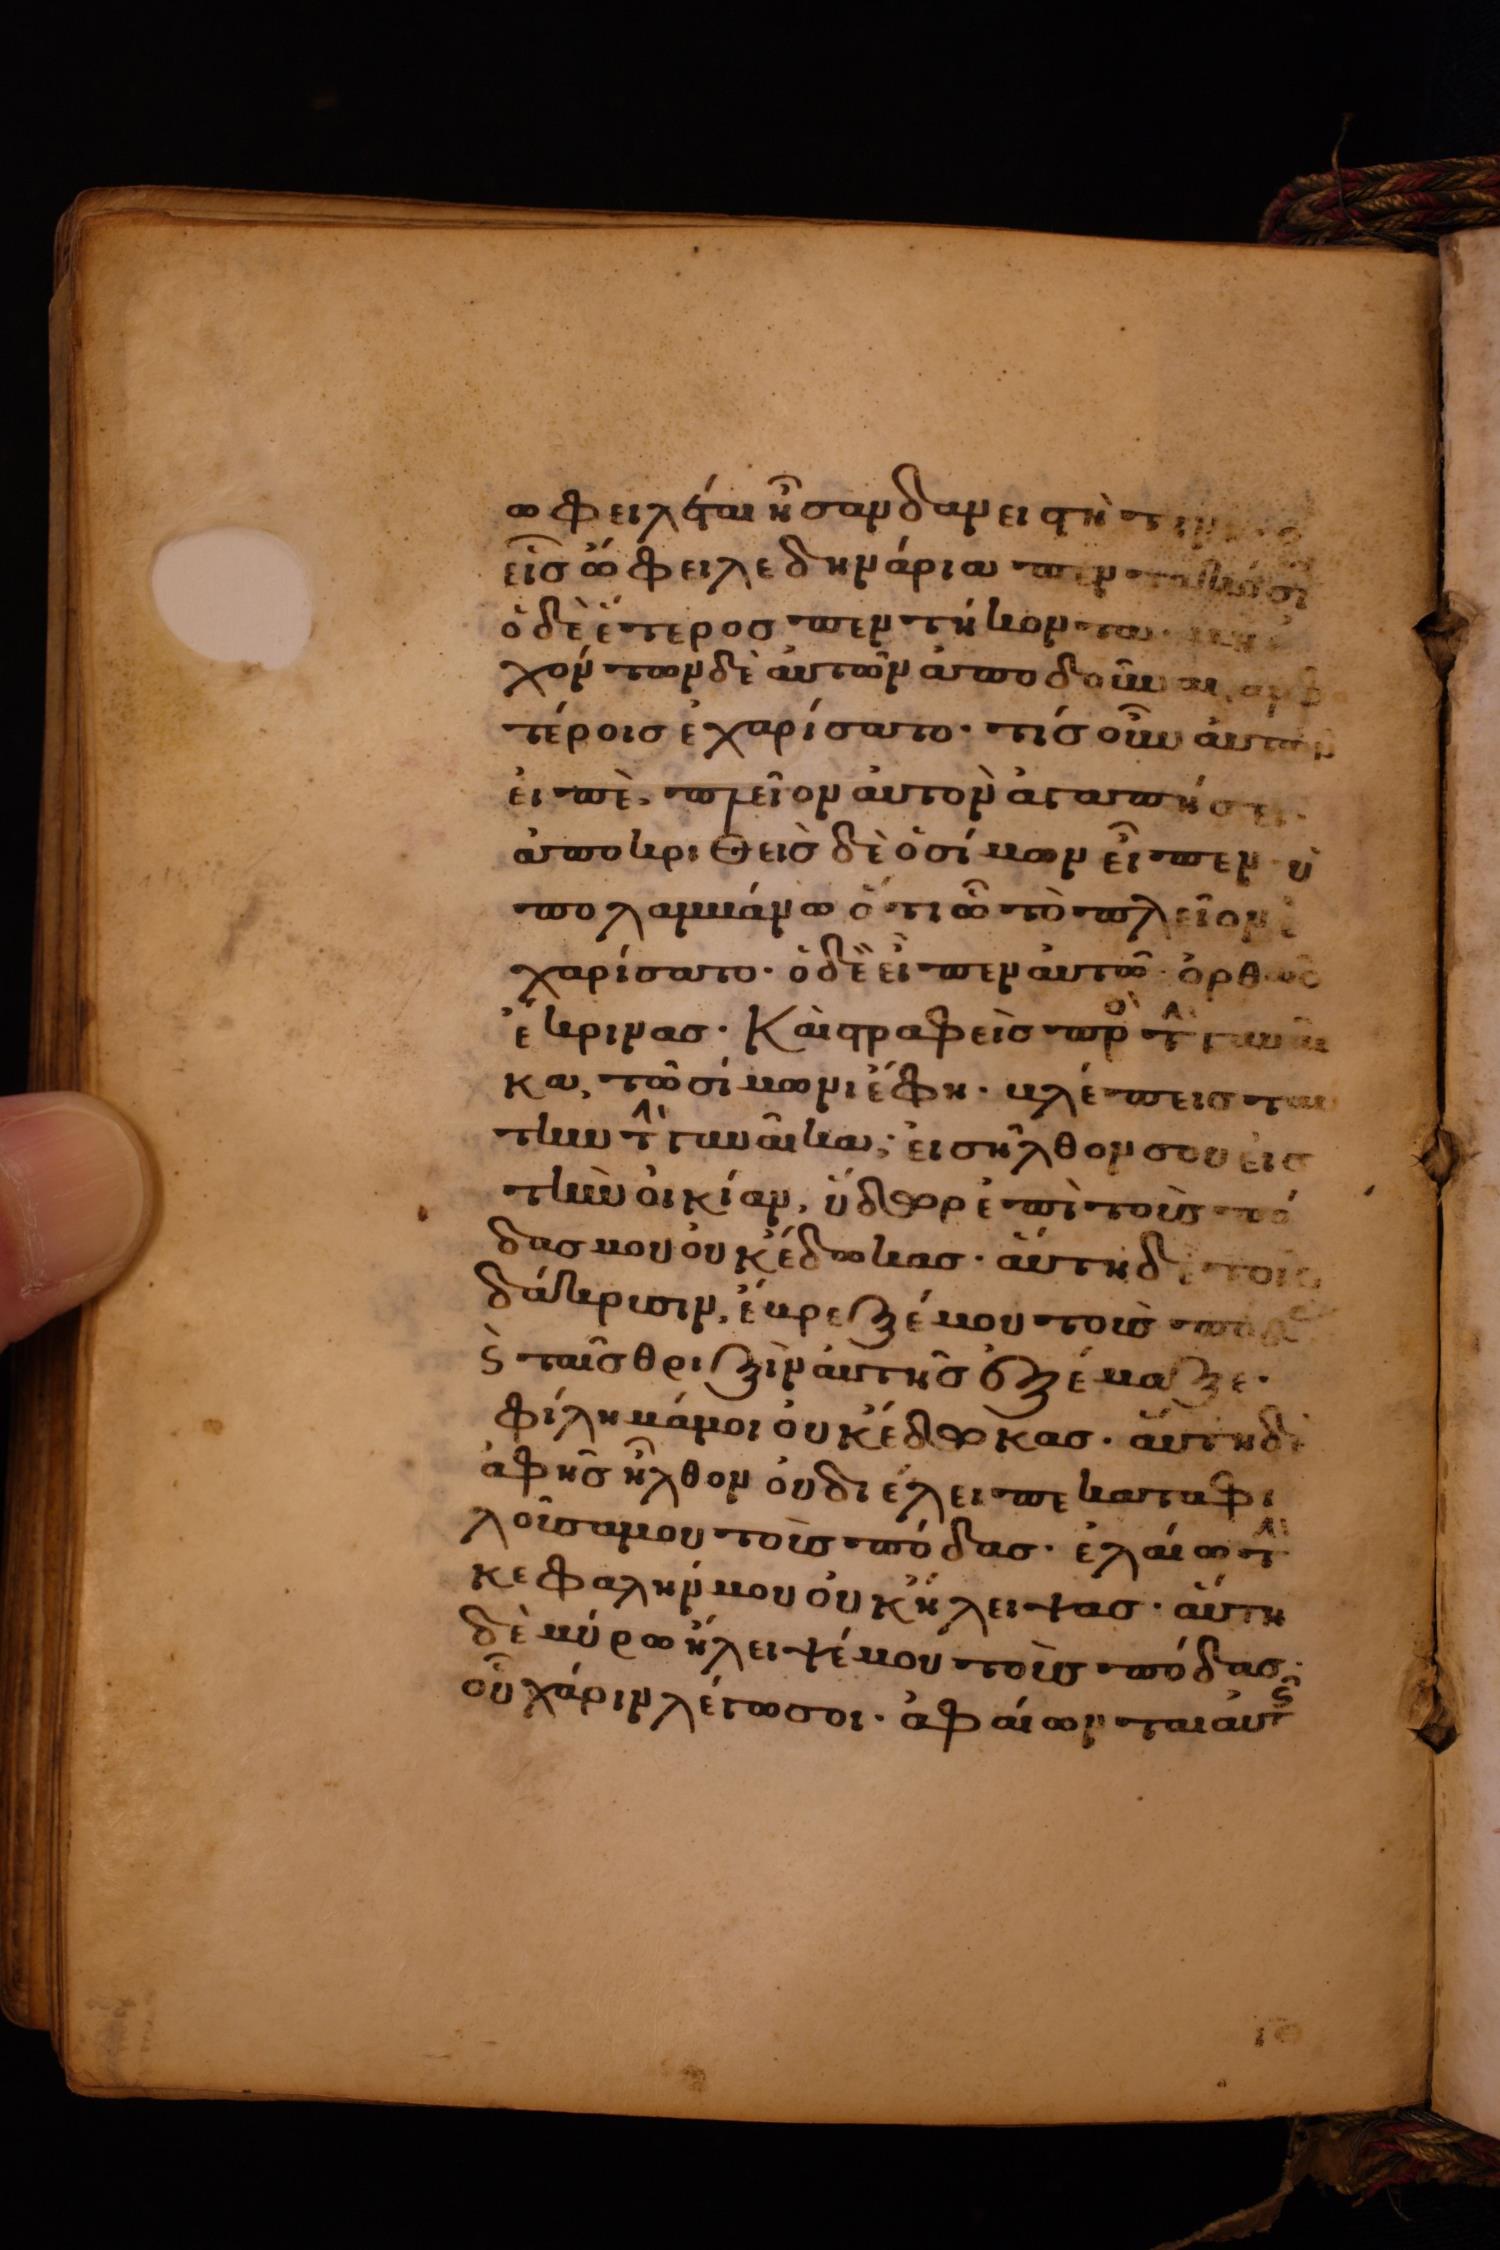 ωφειλέται ἦσαν δανειστῆ τινι·
εἷσ ὤφειλε δηνάρια πεντακόσι
ὁ δὲ ἕτεροσ πεντήκοντα· μὴ ἐ
χόντων δὲ αὐτῶν ἀποδοῦναι, ἀμφο
τέροισ ἐχαρίσατο· τίσ οὖν αὐτῶν
εἰπὲ, πλεῖον αὐτὸν ἀγαπήσει·
ἀποκριθεὶσ δὲ ὁ σίμων εἶπεν· ὑ
πολαμβάνω ὅτι ὧ τὸ πλεῖον ἐ
χαρίσατο· ὁ δὲ εἶπεν αὐτῶ· ὀρθῶσ
ἔκρινασ· Καὶ στραφεὶσ πρὸ τ̀ γυναῖ
κα, τῶ σίμωνι ἔφη· βλέπεισ ταύ
την τ̀ γυναῖκα; εἰσῆλθον σου εἰσ
τὴν οἰκίαν, ὕδωρ ἐπὶ τοὺσ πό
δασ μου οὐκ ἔδωκασ· αὕτη δὲ τοῖσ
δάκρυσιν, ἔβρεξέ μου τοὺσ πόδασ
ϛ̀ ταῖσ θριξὶν αὐτῆσ ἐξέμαξε·
φίλημά μοι οὐκ ἔδωκασ· αὕτη δὲ
ἀφ ἧσ ἦλθον οὐ διέλειπε καταφι
λοῦσα μου τοὺσ πόδασ· ἐλαίω τ̀
κεφαλήν μου οὐκ ἤλειψασ· αὕτη
δὲ μύρω ἤλειψέ μου τοὺσ πόδασ·
οὗ χάριν λέγω σοι· ἀφαίωνται αὐτ